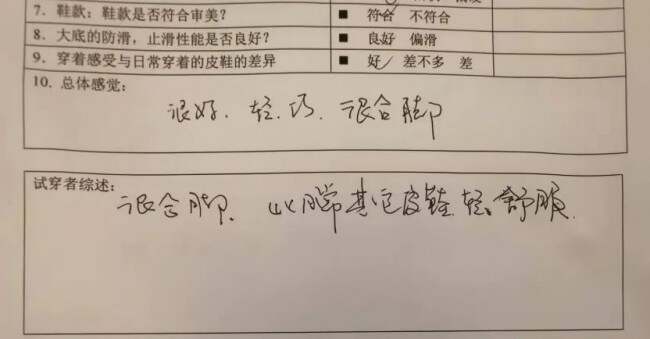 7. 鞋款：鞋款是否符合审美？ ■ 符合 不符合
8. 大底的防滑，止滑性能是否良好？ ■ 良好 偏滑
9. 穿着感受与日常穿着的皮鞋的差异 ■ 好 差不多 差
10. 总体感觉：
很好. 轻. 巧. 很合脚
试穿者综述：
很合脚. 其它皮鞋轻、舒服.